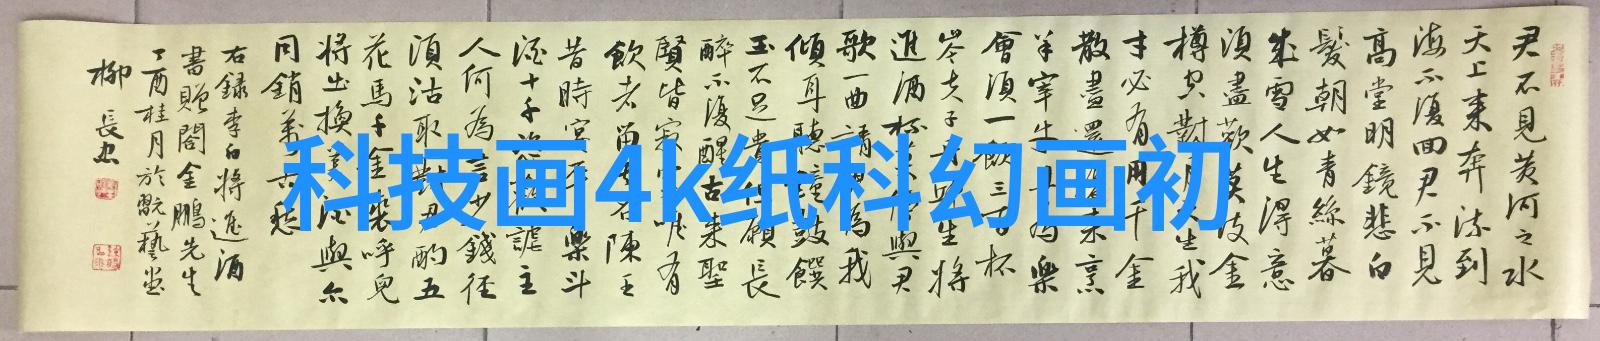 君不見黄河之水
天上来奔流到
海不復回君不見
高堂明鏡悲白
髮朝如青絲暮
成雪人生得意
須盡歡莫使金
樽空對月天生我
才必有用千金
散盡還復来烹
羊宰牛且為樂
會須一飲三百杯
岑夫子丹丘生將
進酒杯莫停與君
歌一曲請君為我
傾耳聽鐘鼓饌
玉不足貴但願長
醉不復醒古来聖
賢皆寂寞唯有
飲者留其名陳王
昔時宴平樂斗
酒十千恣歡謔主
人何為言少錢径
須沽取對君酌五
花馬千金裘呼兒
將出換美酒與尔
同銷萬古愁
右録李白將進酒
書贈閤金鵬先生
丁酉桂月於翫藝堂
柳長忠
科技画4k纸科幻画初